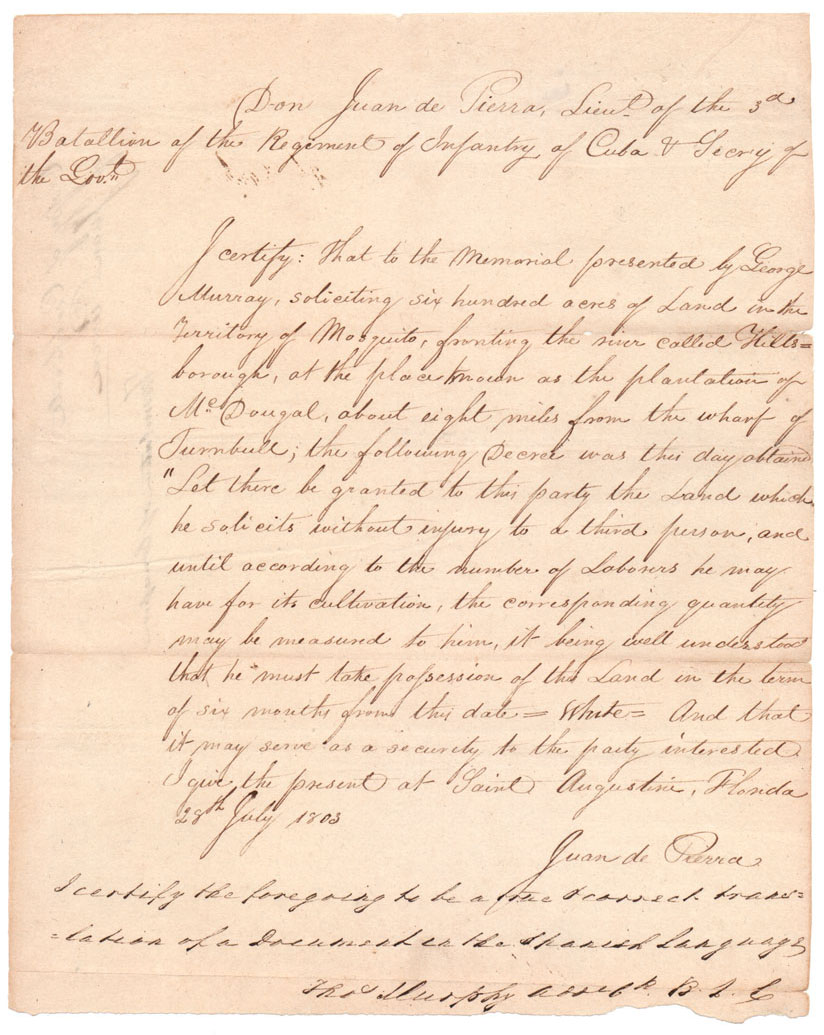 Don Juan de Pierra, Lieut. of the 3d
Batallion of the Regiment of Infantry of Cuba & Secry of
the Govt.
I certify: That to the Memorial presented by George
Murray, soliciting six hundred acres of Land in the
Territory of Mosquito, fronting the river called Hills=
borough, at the place known as the plantation of
Mc.Dougal, about eight miles from the wharf of
Turnbull; the following Decree was this day obtained
"Let there be granted to this party the Land which
he solicits without injury to a third person, and
until according to the number of Laborers he may
have for its cultivation, the corresponding quantity
may be measured to him, it being well understood
that he must take possession of the Land in the term
of six months from this date = White = And that
it may serve as a security to the party interested
I give the present at Saint Augustine, Florida
28th July 1803
Juan de Pierra
I certify the foregoing to be a true & correct trans=
=lation of a Document in the Spanish Language
Thos Murphy B. L. C